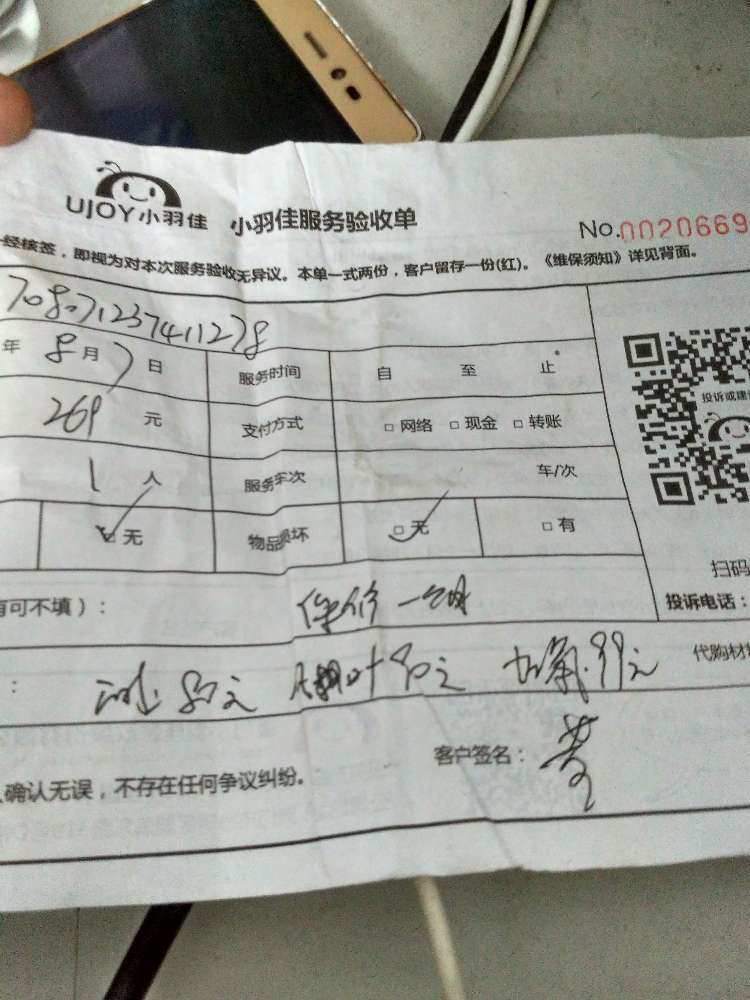 UJOY小羽佳 小羽佳服务验收单 No.0020669
经核签，即视为对本次服务验收无异议。本单一式两份，客户留存一份(红)。《维保须知》详见背面。
年 8月7日 服务时间 自 至 止
269 元 支付方式 □网络 □现金 □转账
投诉或建
1 人 服务车次 车/次
□无 物品损坏 □无 □有
扫码
有可不填）： 保修一个月 投诉电话：
： 80元 90元 加氟 99元 代购材
客户签名： 黄
确认无误，不存在任何争议纠纷。